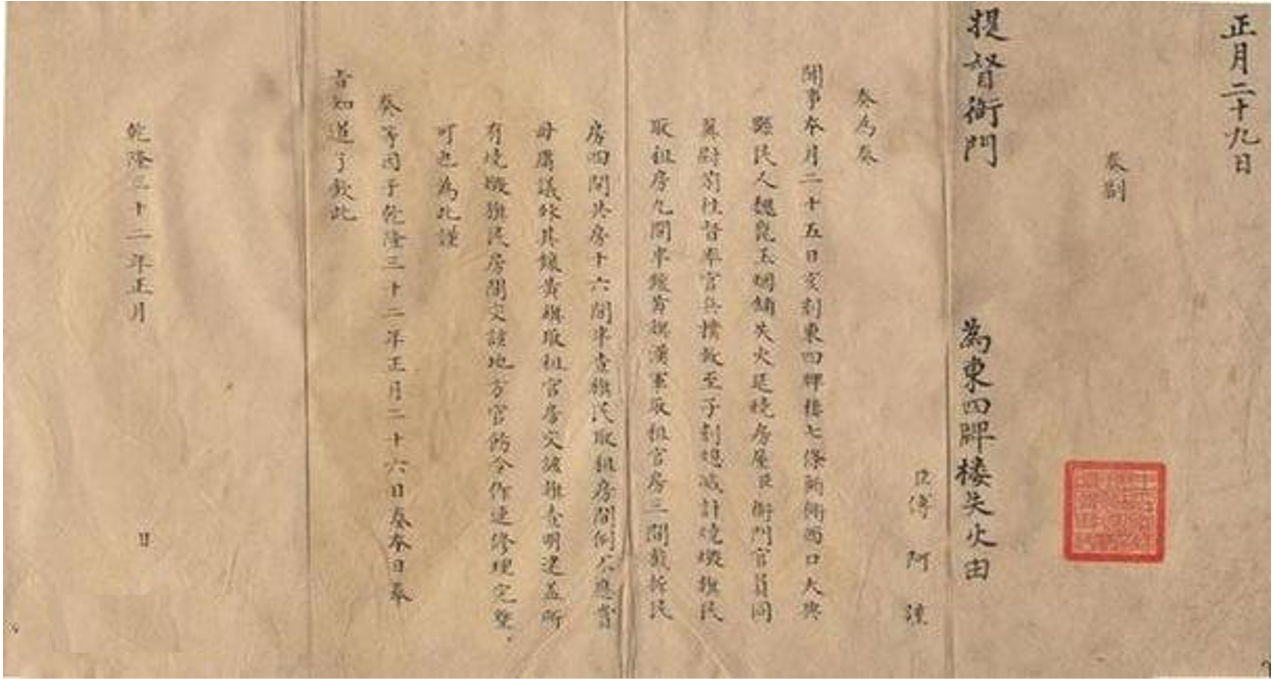 正月二十九日
奏劄
提督衙門 為東四牌樓失火由
臣傅 阿
奏為奏
聞事本月二十五日亥刻東四牌樓七條衚衕西口大興
縣民人魏崑玉烟舖失火延燒房屋臣衙門官員同
督率官兵撲救至子刻熄滅計燒燬旗民
取租房九間車鑲黃旗漢軍取租官房三間 拆民
房四間共房十六間半查旗民取租房間例不應賞
毋庸議外其鑲黃旗取租官房交該旗查明還蓋所
有燒燬旗民房間交該地方官飭令作速修理完整
可也為此謹
奏等因于乾隆三十二年正月二十六日奏本日奉
旨知道了欽此
乾隆三十二年正月 日